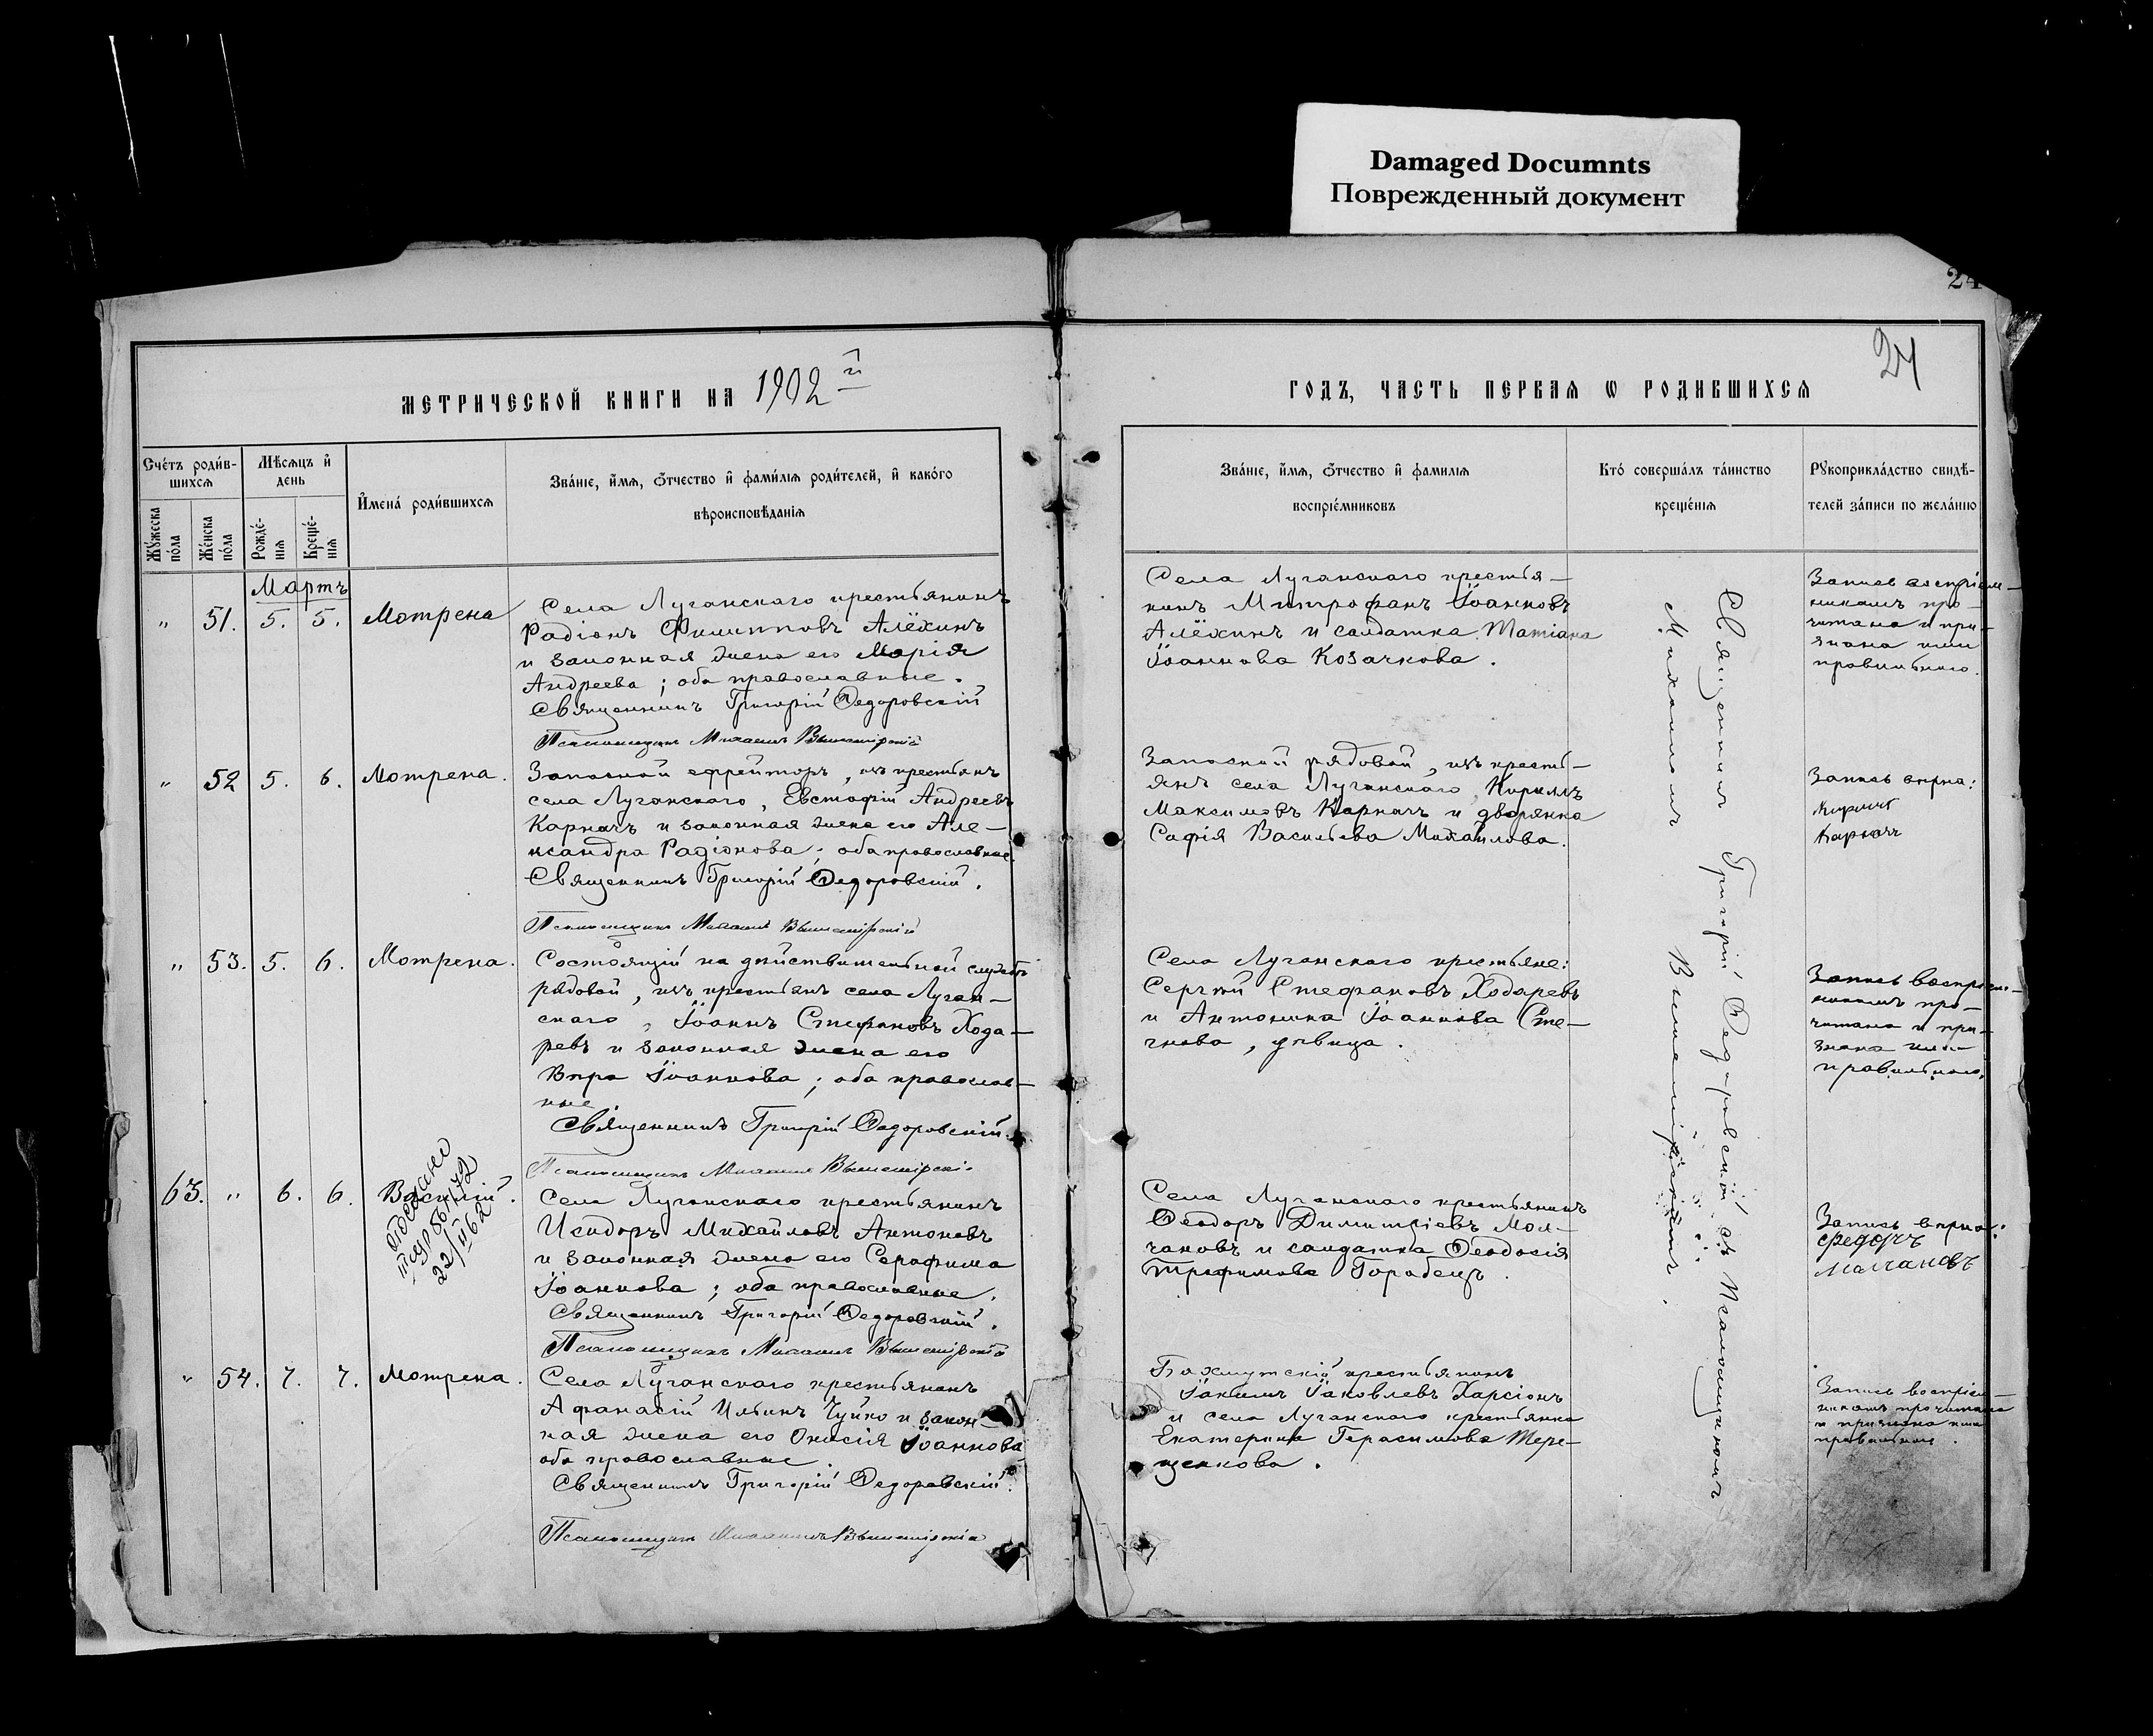 Damaged Documnts
Поврежденный документ
24
24
МЕТРИЧЕСКОЙ КНИГИ НА 1902й
ГОДЪ, ЧАСТЬ ПЕРВАЯ Ѡ РОДИВШИХСЯ
Сче́тъ роди́в-
шихсѧ
Му́жеска по́ла
Же́нска по́ла
Мѣ́сѧцъ и҆
день
Рожде́-
нїѧ
Креще́-
нїѧ
И҆мена́ роди́вшихсѧ
Зва́нїе, и҆́мѧ, ѻ҆́тчество и҆ фами́лїѧ роди́телей, и҆ како́гѡ
вѣроисповѣ́данїѧ
Зва́нїе, и҆́мѧ, ѻ҆́тчество и҆ фами́лїѧ
воспрїе́мниковъ
Кто́ соверша́лъ та́инство
креще́нїѧ
Рꙋкоприкла́дство свидѣ́-
телей за́писи по жела́нїю
Мартъ
" 51. 5. 5. Мотрена
Села Луганскаго крестьянинъ
Радіонъ Филипповъ Алёхинъ
и законная жена его Марія
Андреева; оба православные.
Священникъ Григорій Ѳедоровскій
Псаломщикъ Михаилъ
Села Луганскаго крестья-
нинъ Митрофанъ Іоанновъ
Алёхинъ и солдатка Татіана
Іоаннова Козачкова.
Запись воспріем-
никамъ про-
читана и при-
знана ими
правильною.
" 52 5. 6. Мотрена.
Запасной ефрейторъ, изъ крестьянъ
села Луганскаго, Евстафій Андреевъ
Карначъ и законная жена его Але-
ксандра Радіонова; оба православные.
Священникъ Григорій Ѳедоровскій.
Псаломщикъ Михаилъ
Запасной рядовой, изъ кресть-
янъ села Луганскаго, Кириллъ
Максимовъ Карначъ и дворянка
Софія Васильева Михайлова.
Запись вѣрна:
Кирилъ
Карначъ
" 53. 5. 6. Мотрена.
Состоящій на дѣйствительной службѣ
рядовой, изъ крестьянъ села Луган-
скаго, Іоаннъ Стефановъ Хода-
ревъ и законная жена его
Вѣра Іоаннова; оба православ-
ные.
Священникъ Григорій Ѳедоровскій.
Псаломщикъ Михаилъ
Села Луганскаго крестьяне:
Сергѣй Стефановъ Ходаревъ
и Антонина Іоаннова Сте-
гнова, дѣвица.
Запись воспріем-
никамъ про-
читана и при-
знана ими
правильною.
63. " 6. 6. Василій.
Села Луганскаго крестьянинъ
Исидоръ Михайловъ Антоновъ
и законная жена его Серафима
Іоаннова; оба православные.
Священникъ Григорій Ѳедоровскій.
Псаломщикъ Михаилъ
Села Луганскаго крестьянинъ
Ѳеодоръ Димитріевъ Мол-
чановъ и солдатка Ѳеодосія
Трофимова Горобецъ.
Запись вѣрна:
Федоръ
Малчановъ
" 54. 7. 7. Мотрена.
Села Луганскаго крестьянинъ
Афанасій Ильинъ Чуйко и закон-
ная жена его Онисія Іоаннова
оба православные.
Священникъ Григорій Ѳедоровскій.
Псаломщикъ Михаилъ
Бахмутскій крестьянинъ
Іакимъ Іаковлевъ
и села Луганскаго крестьянка
Екатерина Герасимова Тере-
щенкова.
Запись воспріем-
никамъ прочитана
и признана ими
правильною.
Священникъ Григорій Ѳедоровскій съ Псаломщикомъ
Михаиломъ